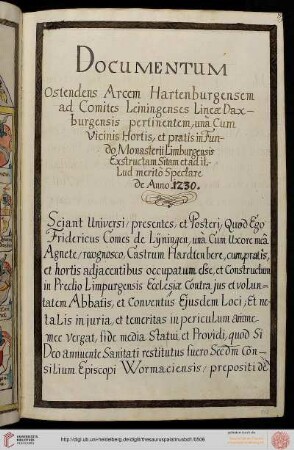 DOCUMENTUM
Ostendens Arcem Hartenburgensem
ad Comites Leiningenses Lineæ Dax-
burgensis pertinentem, unà Cum
Vicinis Hortis, et pratis in Fun-
do Monasterij Limburgensis
Exstructam Sitam et ad il-
Lud meritò Spectare
de Anno 1230.
Sciant Universi, presentes, et Posteri, Quod Ego
Fridericus Comes de Lijningen, unà Cum Uxore meâ
Agnete, recognosco, Castrum Hardtenbere, cum pratis,
et hortis adjacentibus occupatum esse, et Constructum
in Predio Limpurgensis Ecclesiæ Contra jus et volun-
tatem Abbatis, et Conventus Ejusdem Loci, Et ne
talis injuria, et temeritas in periculum animæ
meæ vergat, fide media Statui, et Providi, quod Si
Deo annuente Sanitati restitutus fuero Secdm Con-
silium Episcopi Wormaciensis, prepositi de
http://digi.ub.uni-heidelberg.de/diglit/thesauruspalatinusbd1/0506